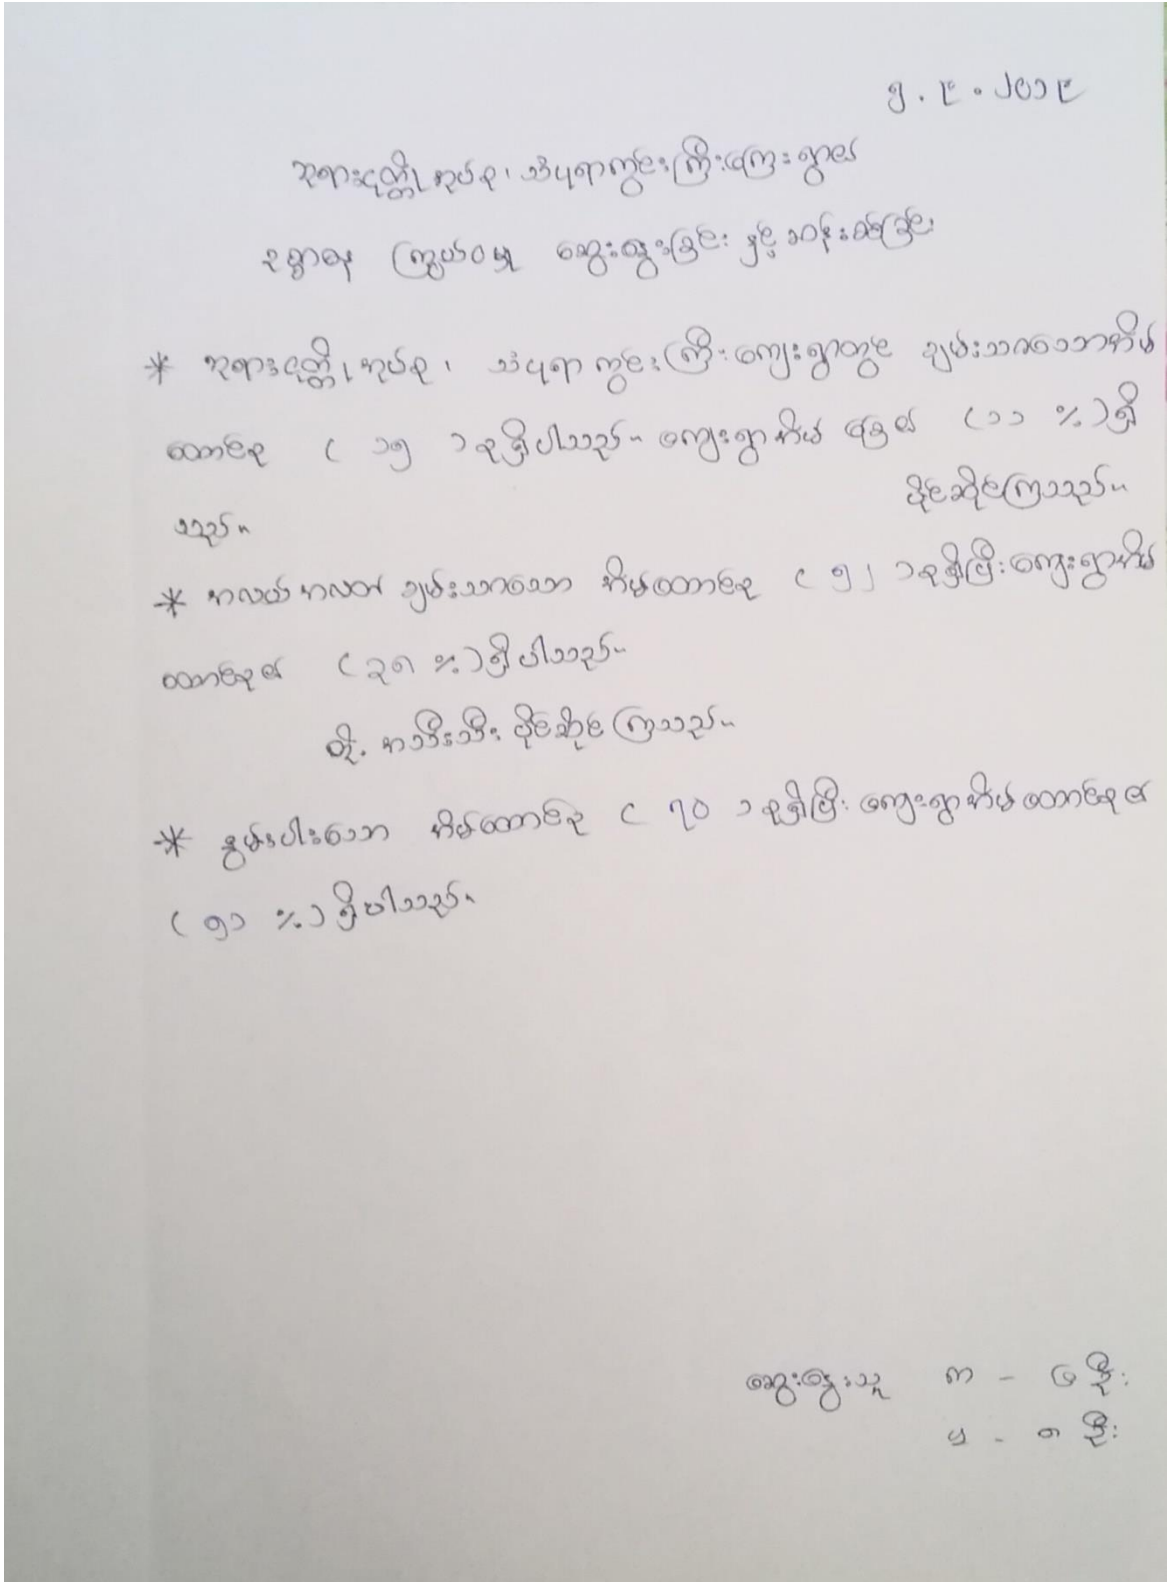 ၅ . ၉ . ၂၀၁၉
ဘုရားငုတ္တိုအုပ်စု၊ သံပုရာကွင်းကြီးကျေးရွာ၏
ဥစ္စာဓန ကြွယ်ဝမှု ဆွေးနွေးခြင်း နှင့် ဆန်းစစ်ခြင်း
* ဘုရားငုတ္တိုအုပ်စု၊ သံပုရာကွင်းကြီးကျေးရွာတွင် ချမ်းသာသောအိမ်
ထောင်စု ( ၁၅ ) စုရှိပါသည်။ ကျေးရွာအိမ်ခြေ၏ (၁၁ %) ရှိ
သည်။
ပိုင်ဆိုင်ကြသည်။
* အလယ်အလတ် ချမ်းသာသော အိမ်ထောင်စု ( ၅၂ ) စုရှိပြီး ကျေးရွာအိမ်
ထောင်စု၏ (၃၈ %) ရှိပါသည်။
တို့ အသီးသီး ပိုင်ဆိုင်ကြသည်။
* နွမ်းပါးသော အိမ်ထောင်စု ( ၇၀ ) စုရှိပြီး ကျေးရွာအိမ်ထောင်စု၏
(၅၁ %) ရှိပါသည်။
ဆွေးနွေးသူ ကျား - ဦး
မ - ၈ ဦး